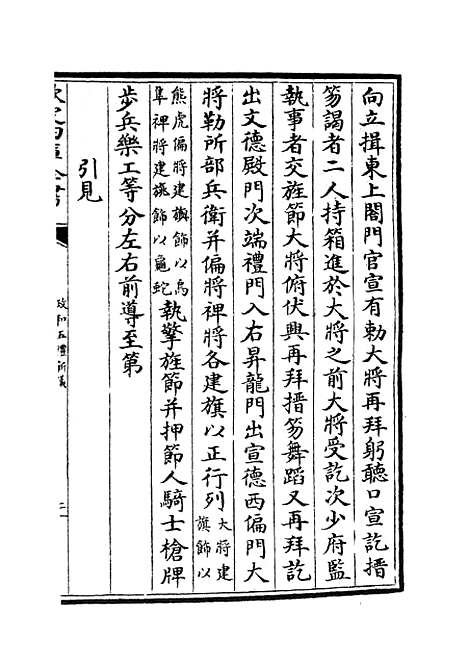 向立揖東上閤門官宣有勅大將再拜躬聽口宣訖搢
笏謁者二人持箱進於大將之前大將受訖次少府監
執事者交旌節大將俯伏興再拜搢笏舞蹈又再拜訖
出文德殿門次端禮門入右昇龍門出宣德西偏門大
將勒所部兵衛并偏將裨將各建旗以正行列大將建
旗飾以
熊虎偏將建旟飾以鳥
隼裨將建旐飾以龜蛇執擎旌節并押節人騎士槍牌
步兵樂工等分左右前導至第
引見
政和五禮新儀